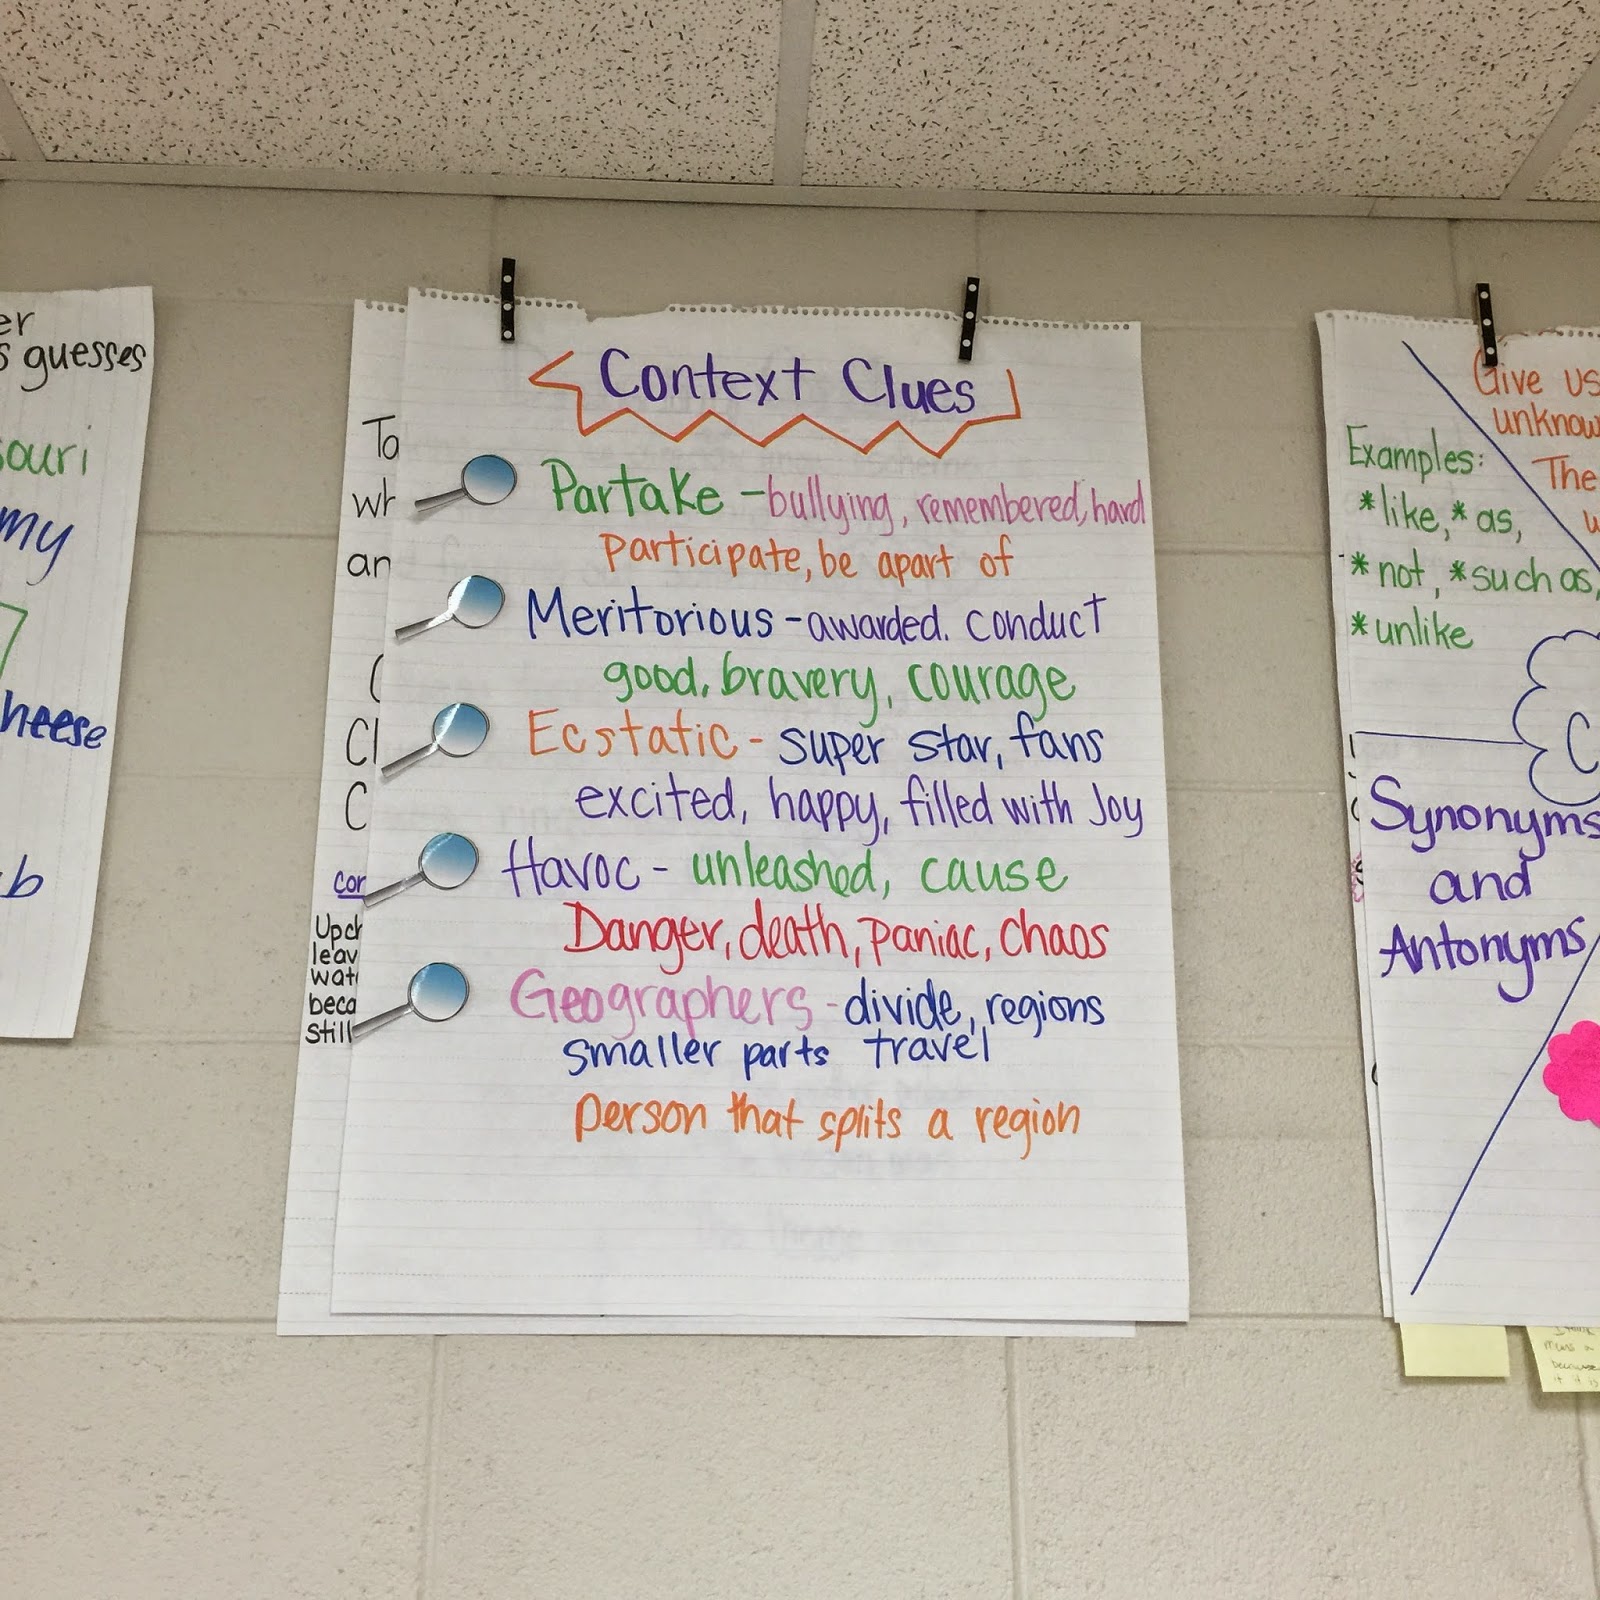 guesses
my
Context Clues
Partake - bullying, remembered, hard
participate, be apart of
Meritorious - awarded. conduct
good, bravery, courage
Ecstatic - super star, fans
excited, happy, filled with Joy
Havoc - unleashed, cause
Danger, death, paniac, chaos
Geographers - divide, regions
smaller parts travel
person that splits a region
To
an
still
Give us
The
Examples:
*like, *as,
*not, *such as,
*unlike
Synonyms
and
Antonyms